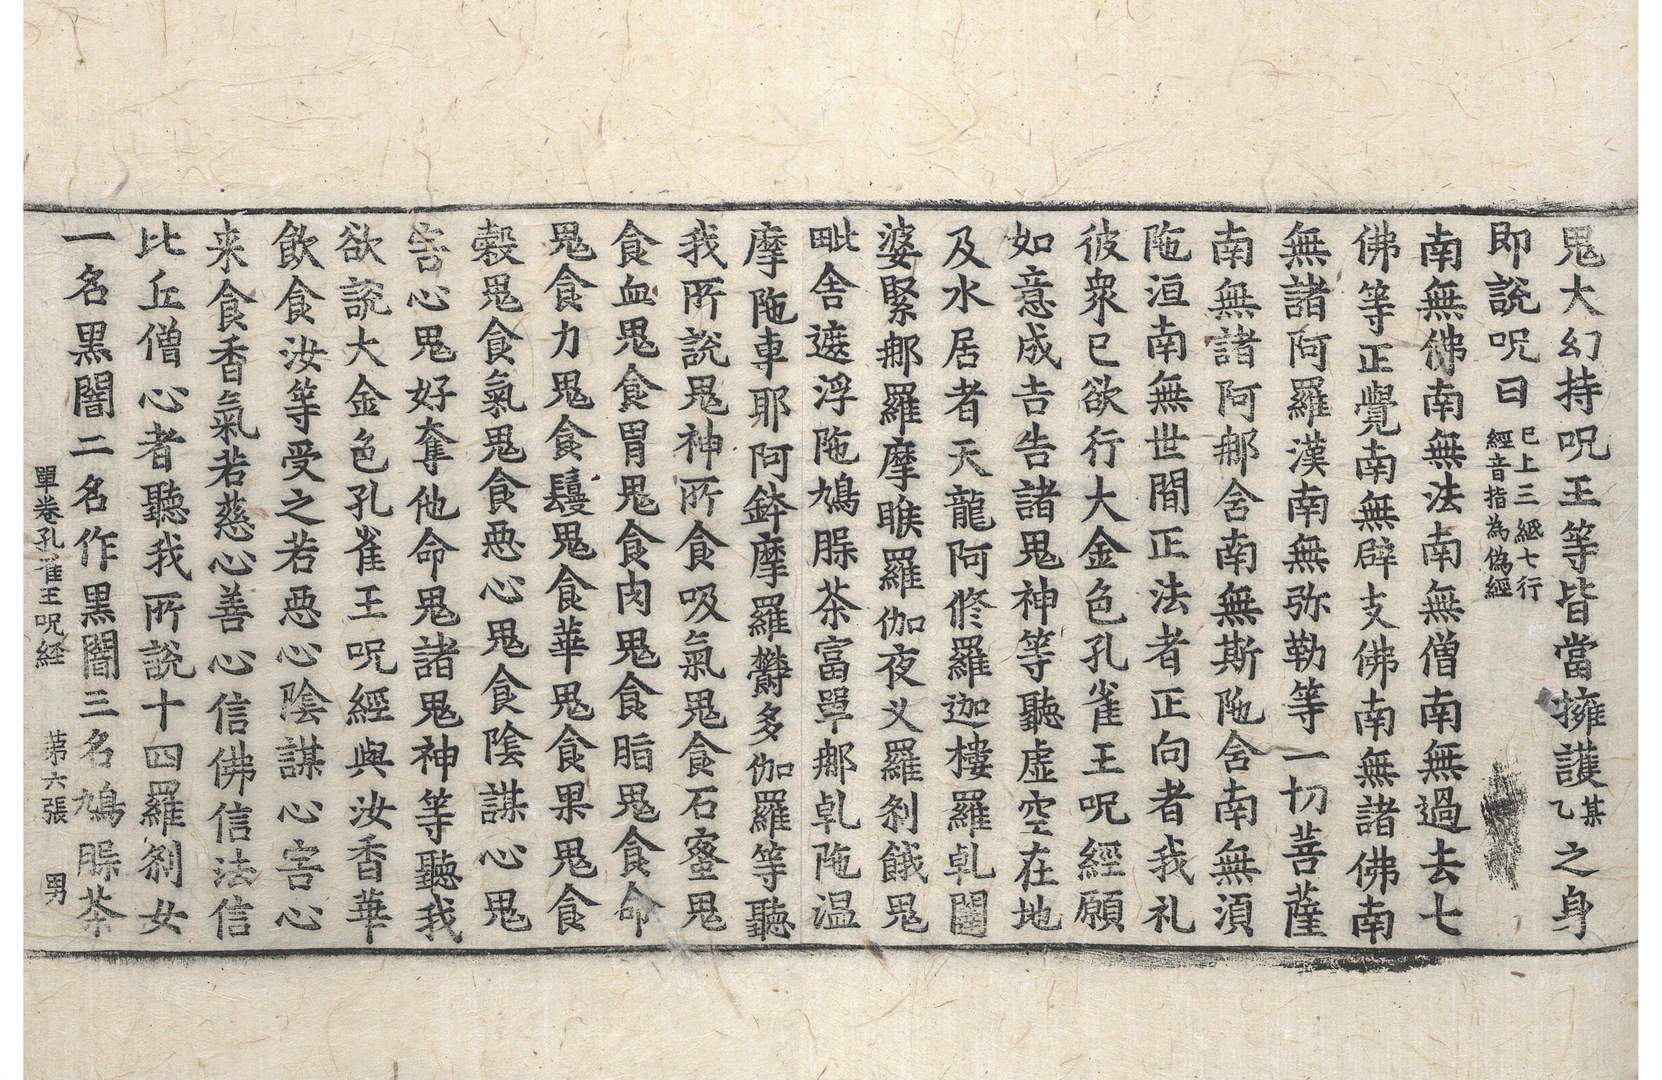 鬼大幻持呪王等皆當擁護某乙之身
即說呪曰已上三紙七行經音指為偽經
南無佛南無法南無僧南無過去七
佛等正覺南無辟支佛南無諸佛南
無諸阿羅漢南無弥勒等一切菩薩
南無諸阿那舍南無斯陁舍南無湏
陁洹南無世間正法者正向者我礼
彼衆已欲行大金色孔雀王呪經願
如意成吉告諸鬼神等聽虛空在地
及水居者天龍阿脩羅迦樓羅乹闥
婆緊那羅摩睺羅伽夜叉羅刹餓鬼
毗舍遮浮陁鳩脲茶富單那乹陁温
摩陁車耶阿鉢摩羅欝多伽羅等聽
我所說鬼神所食吸氣鬼食石蜜鬼
食血鬼食胃鬼食肉鬼食脂鬼食命
鬼食力鬼食鬘鬼食華鬼食果鬼食
穀鬼食氣鬼食惡心鬼食陰謀心鬼
害心鬼好奪他命鬼諸鬼神等聽我
欲說大金色孔雀王呪經與汝香華
飲食汝等受之若惡心陰謀心害心
来食香氣若慈心善心信佛信法信
比丘僧心者聽我所說十四羅刹女
一名黑闇二名作黑闇三名鳩脲茶
單卷孔雀王呪經 第六張 男